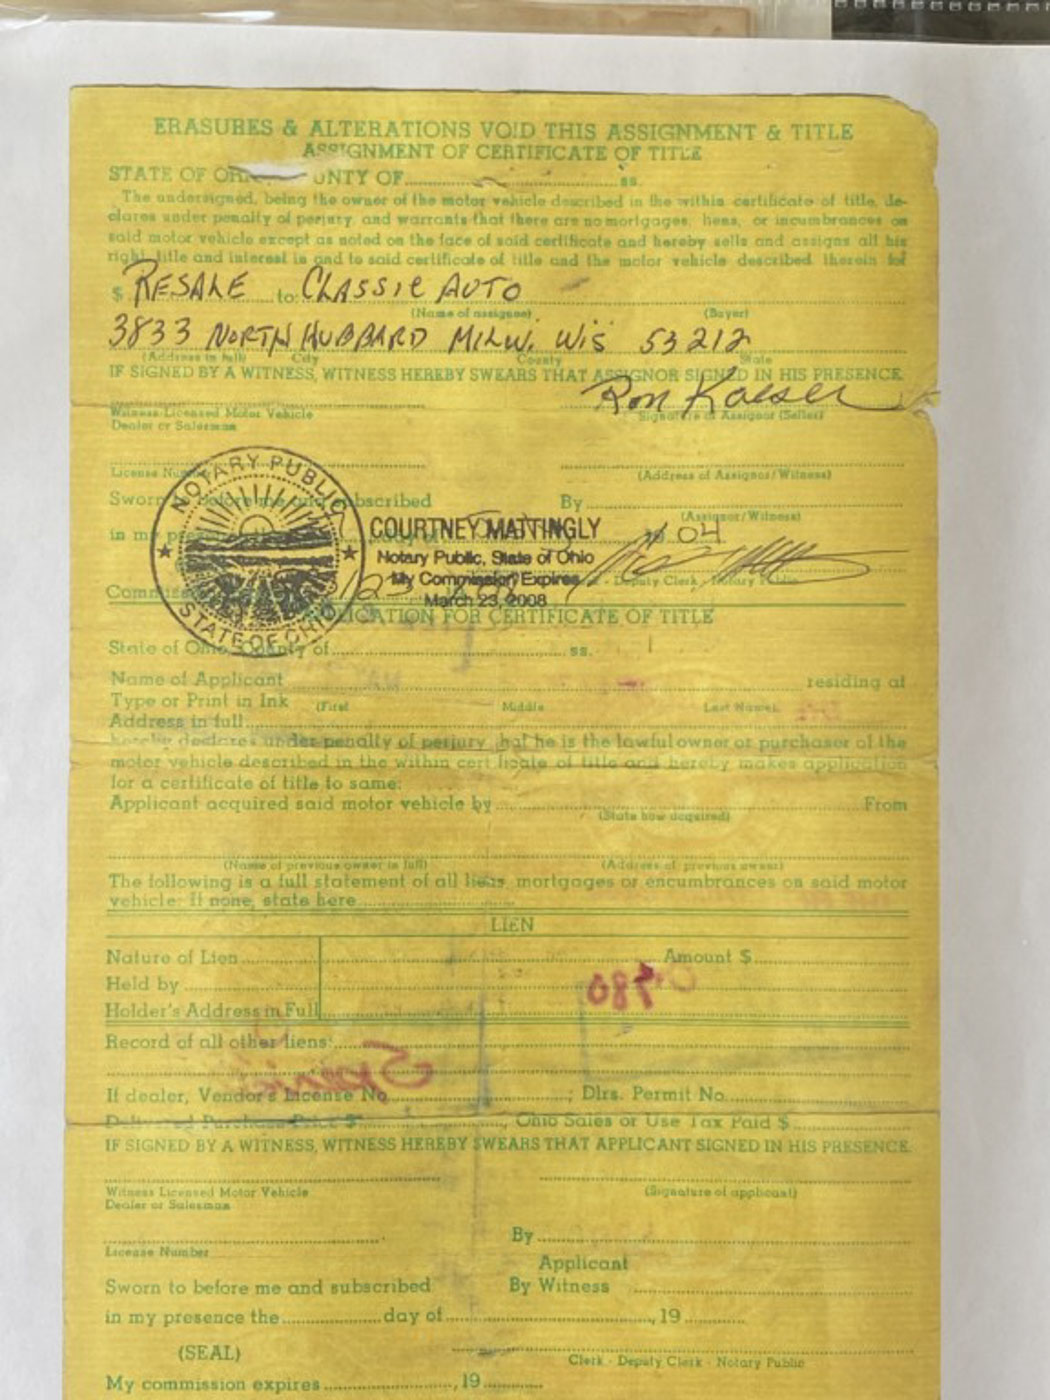 ERASURES & ALTERATIONS VOID THIS ASSIGNMENT & TITLE
ASSIGNMENT OF CERTIFICATE OF TITLE
STATE OF UNTY OF ss.
The undersigned, being the owner of the motor vehicle described in the within certificate of title, de-
clares under penalty of perjury, and warrants that there are no mortgages, liens, or incumbrances on
said motor vehicle except as noted on the face of said certificate and hereby sells and assigns all his
right, title and interest in and to said certificate of title and the motor vehicle described therein for
$ RESALE to: CLASSIC AUTO
(Name of assignee) (Buyer)
3833 NORTH HUBBARD MILW. WIS 53212
(Address in full) City County State
IF SIGNED BY A WITNESS, WITNESS HEREBY SWEARS THAT ASSIGNOR SIGNED IN HIS PRESENCE.
Ron Kaeser
Witness-Licensed Motor Vehicle Signature of Assignor (Seller)
Dealer or Salesman
License Number (Address of Assignor/Witness)
Sworn to before me and subscribed By
(Assignor/Witness)
in my 04
NOTARY PUBLIC
STATE OF OHIO
COURTNEY MATTINGLY
Notary Public, State of Ohio
My Commission Expires - Deputy Clerk - Notary Public
March 23, 2008
APPLICATION FOR CERTIFICATE OF TITLE
State of Ohio, County of ss.
Name of Applicant residing at
Type or Print in Ink (First Middle Last Name)
Address in full
hereby declares under penalty of perjury that he is the lawful owner or purchaser of the
motor vehicle described in the within certificate of title and hereby makes application
for a certificate of title to same:
Applicant acquired said motor vehicle by From
(State how acquired)
(Name of previous owner in full) (Address of previous owner)
The following is a full statement of all liens, mortgages or encumbrances on said motor
vehicle: If none, state here
LIEN
Nature of Lien Amount $
Held by
Holder's Address in Full
Record of all other liens:
If dealer, Vendor's License No. ; Dlrs. Permit No.
Delivered Purchase Price $ , Ohio Sales or Use Tax Paid $
IF SIGNED BY A WITNESS, WITNESS HEREBY SWEARS THAT APPLICANT SIGNED IN HIS PRESENCE.
Witness Licensed Motor Vehicle (Signature of applicant)
Dealer or Salesman
By
License Number
Applicant
Sworn to before me and subscribed By Witness
in my presence the day of , 19
(SEAL)
Clerk - Deputy Clerk - Notary Public
My commission expires , 19